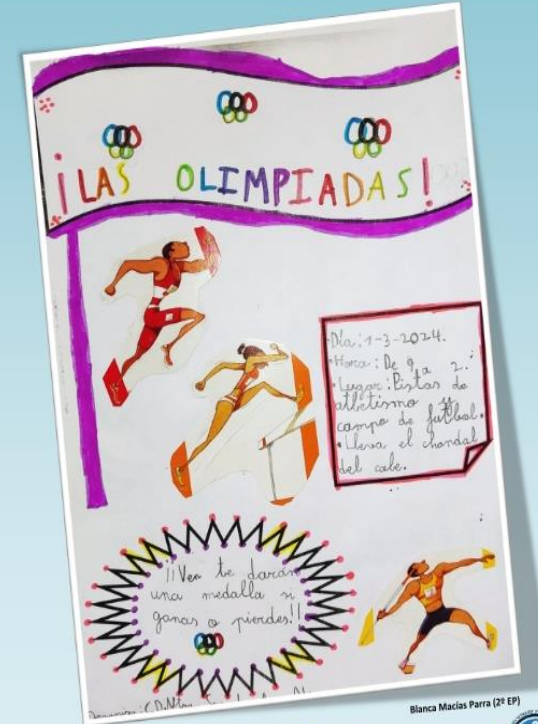 ¡LAS OLIMPIADAS!
-Día: 1-3-2024.
•Hora: De 9 a 2.
•Lugar: Pistas de
atletismo y
campo de fútbol.
•Lleva el chandal
del cole.
¡¡Ven te darán
una medalla si
ganas o pierdes!!
Blanca Macías Parra (2º EP)